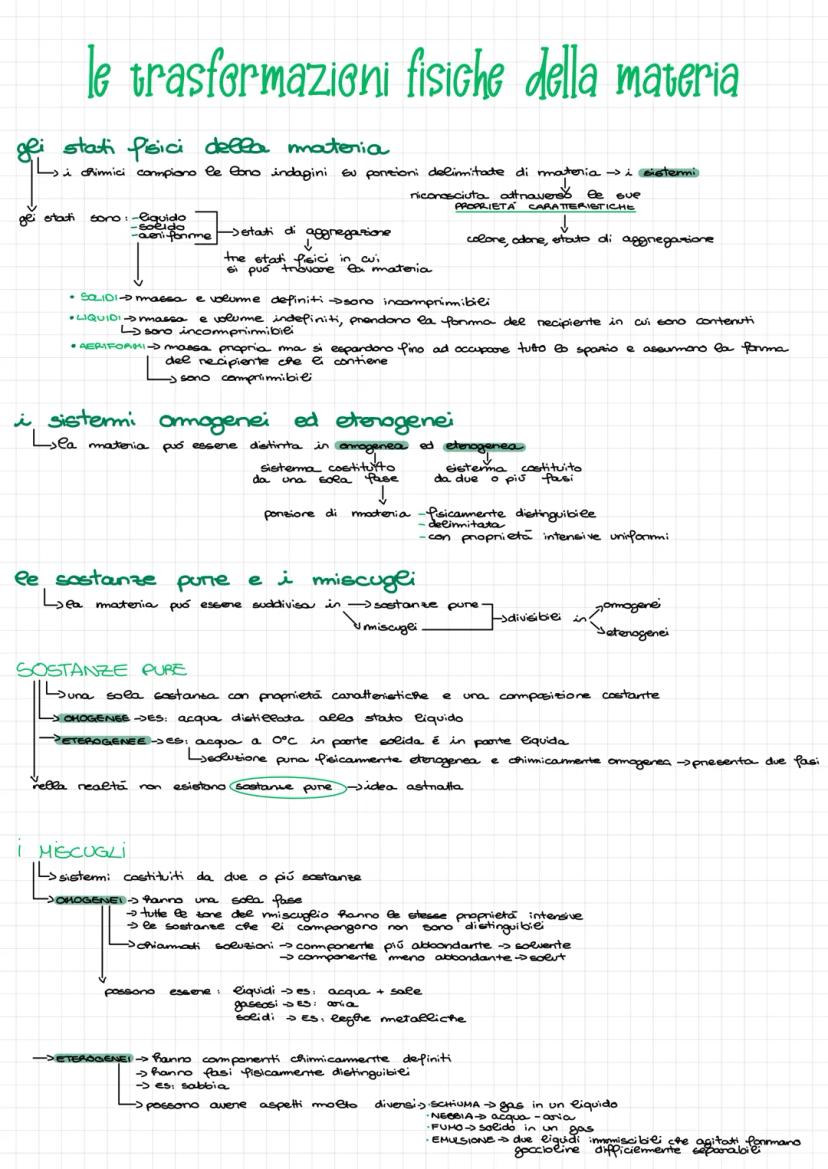 le trasformazioni fisiche della materia
gli stati fisici della materia
↳ i chimici compiono le loro indagini su porzioni delimitate di materia → i sistemi
riconosciuta attraverso le sue
PROPRIETÀ CARATTERISTICHE
colore, odore, stato di aggregazione
gli stati sono: -liquido
-solido
-aeriforme
→ stati di aggregazione
tre stati fisici in cui
si può trovare la materia
• SOLIDI → massa e volume definiti → sono incomprimibili
• LIQUIDI → massa e volume indefiniti, prendono la forma del recipiente in cui sono contenuti
↳ sono incomprimibili
• AERIFORMI → massa propria ma si espandono fino ad occupare tutto lo spazio e assumono la forma
del recipiente che li contiene
↳ sono comprimibili
i sistemi omogenei ed eterogenei
↳ la materia può essere distinta in omogenea ed eterogenea
sistema costituito
da una sola fase
sistema costituito
da due o più fasi
porzione di materia -fisicamente distinguibile
-delimitata
-con proprietà intensive uniformi
le sostanze pure e i miscugli
↳ la materia può essere suddivisa in → sostanze pure
miscugli
→ divisibili in
omogenei
eterogenei
SOSTANZE PURE
↳ una sola sostanza con proprietà caratteristiche e una composizione costante
OMOGENEE → es: acqua distillata allo stato liquido
ETEROGENEE → es: acqua a 0°C in parte solida é in parte liquida
↳ soluzione pura fisicamente eterogenea e chimicamente omogenea → presenta due fasi
nella realtà non esistono sostanze pure → idea astratta
i MISCUGLI
↳ sistemi costituiti da due o più sostanze
OMOGENEI → hanno una sola fase
→ tutte le zone del miscuglio hanno le stesse proprietà intensive
→ le sostanze che li compongono non sono distinguibili
↳ chiamati soluzioni → componente più abbondante → solvente
→ componente meno abbondante → solut
possono essere: liquidi → es: acqua + sale
gassosi → es: aria
solidi → es: leghe metalliche
→ ETEROGENEI → hanno componenti chimicamente definiti
→ hanno fasi fisicamente distinguibili
→ es: sabbia
↳ possono avere aspetti molto diversi: • SCHIUMA → gas in un liquido
• NEBBIA → acqua - aria
• FUMO → solido in un gas
• EMULSIONE → due liquidi immiscibili che agitati formano
goccioline difficilmente separabili